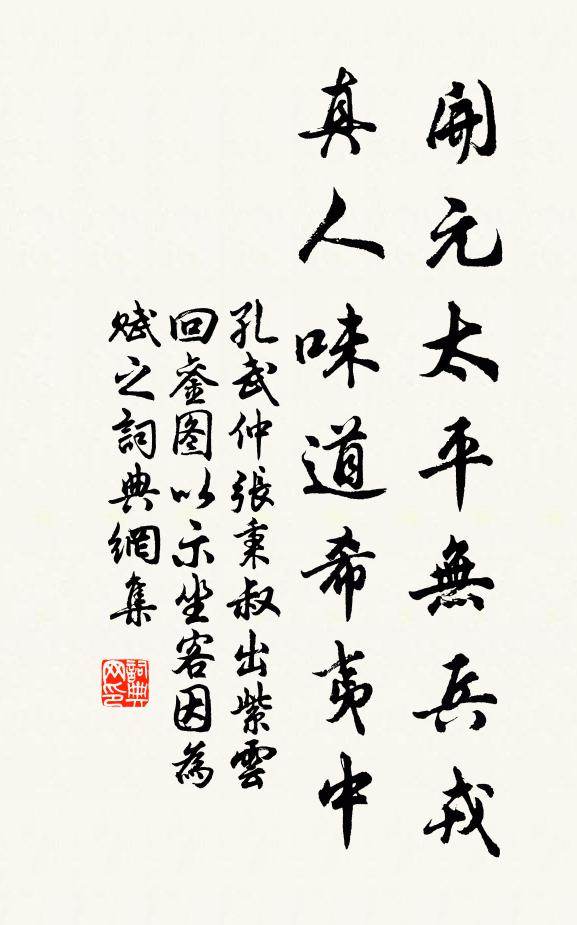 開元太平無兵戎
真人味道希夷中
孔武仲張秉叔出紫雲
回鑾图以示坐客因為
賦之詞典網集
詞典网印